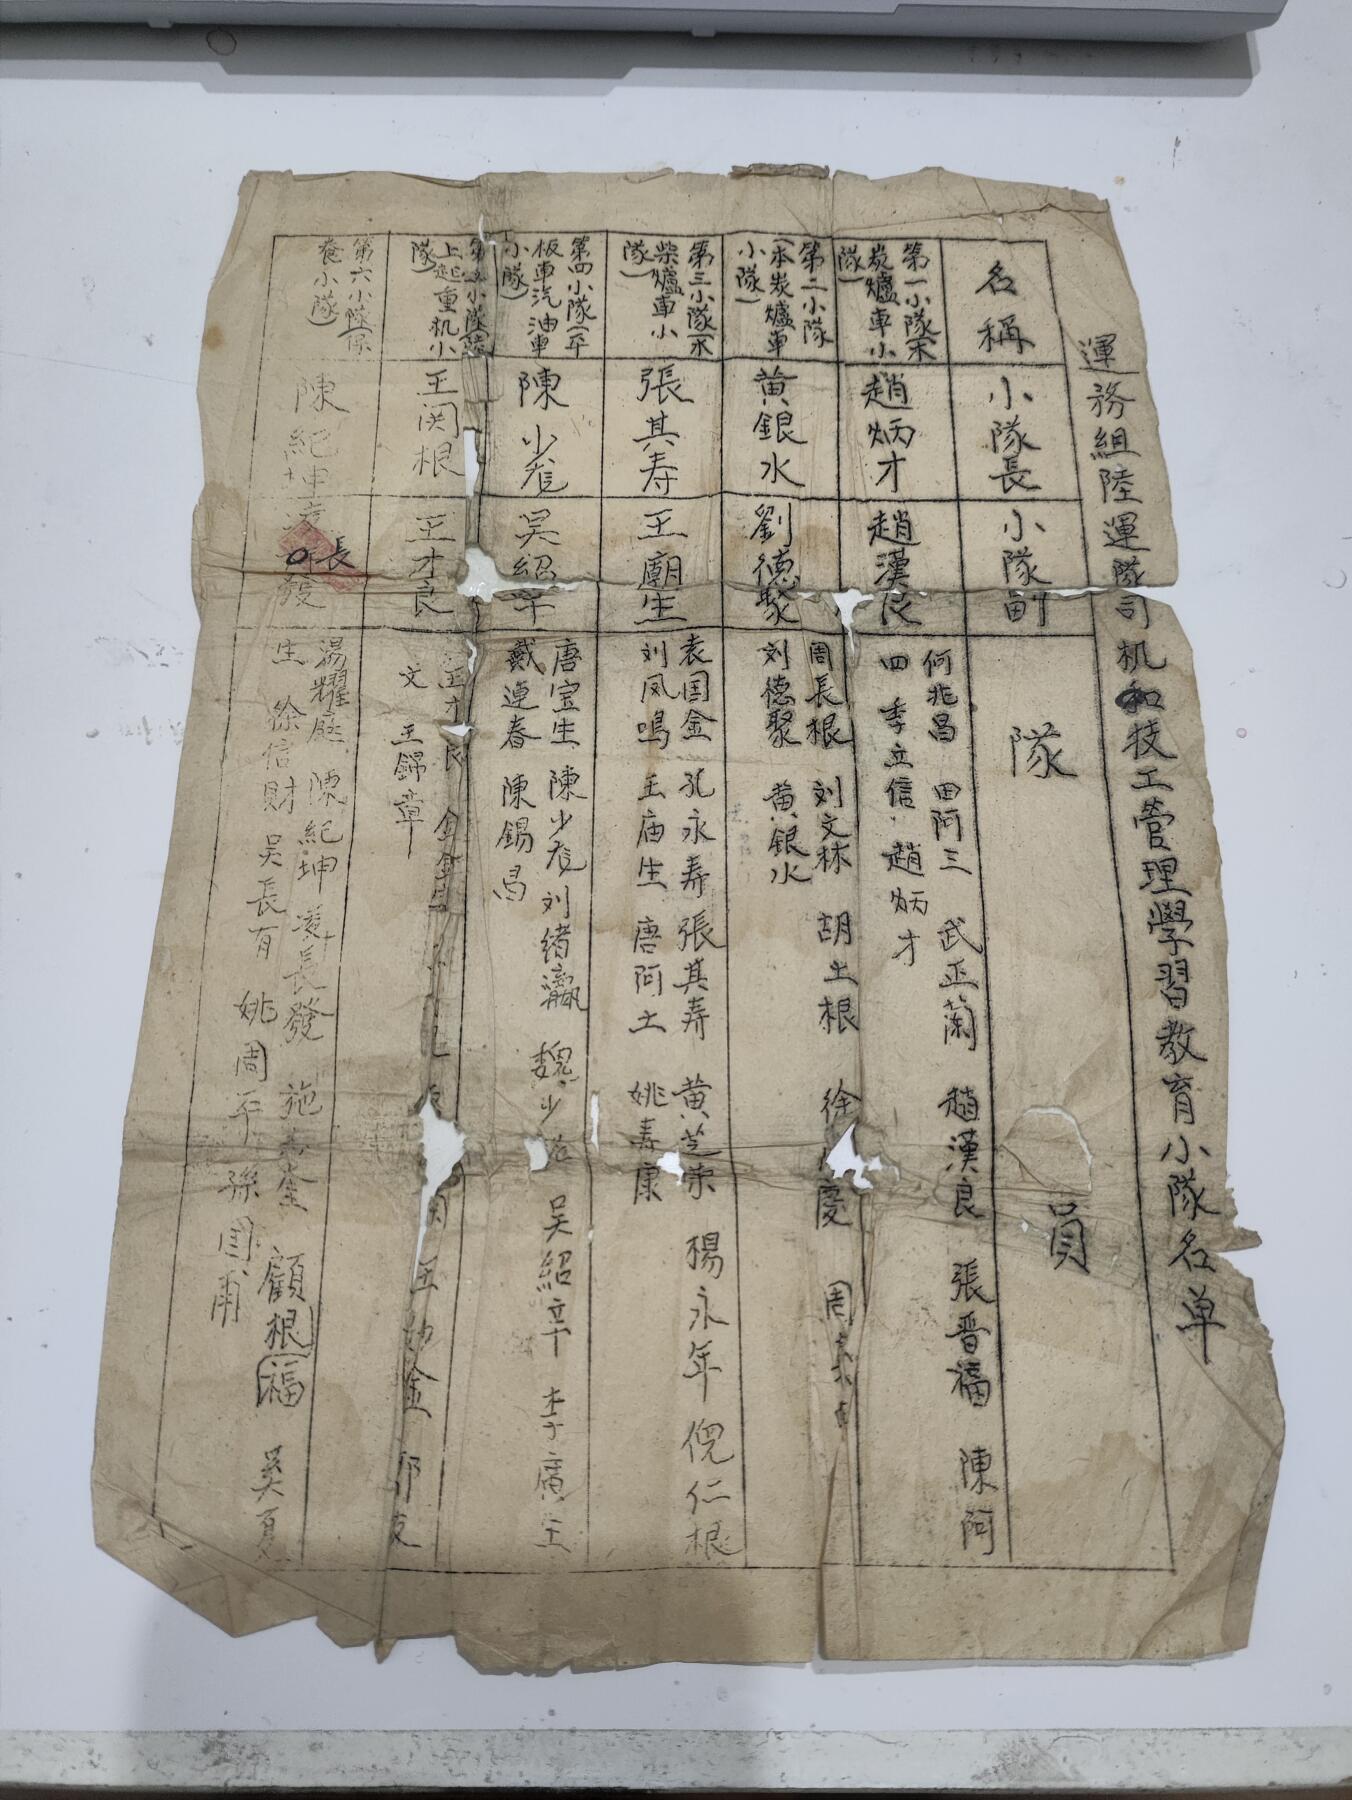 運務組陸運隊司机和技工管理學習教育小隊名单
名稱
小隊長
小隊副
隊員
第一小隊(木
炭爐車小
隊)
趙炳才
趙漢良
何兆昌 田阿三 武正蘭 趙漢良 張晋福 陳阿
四 季立信 趙炳才
第二小隊
(木炭爐車
小隊)
黄銀水
劉德聚
周長根 刘文林 胡土根 徐 慶 周
刘德聚 黄银水
第三小隊(木
柴爐車小
隊)
張其寿
王廟生
袁国金 孔永寿 張其寿 黄芝荣 楊永年 倪仁根
刘凤鳴 王庙生 唐阿土 姚寿康
第四小隊(平
板車汽油車
小隊)
陳少卷
吴紹章
唐宝生 陳少卷 刘绪瀛 魏少 吴紹章 李廣生
戴連春 陳錫昌
第五小隊(陸
上起重机小
隊)
王関根
王才良
王才良 金 関 王 金 邱文
文 王錦章
第六小隊(保
養小隊)
陳紀坤
凌長發
湯耀庭 陳紀坤 凌長發 施 奎 顧根福 吴夏
生 徐信財 吴長有 姚周平 孫国甫